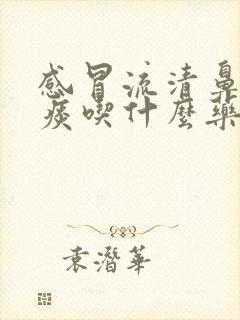 感冒流清鼻
痰喫什麼藥
袁潛華